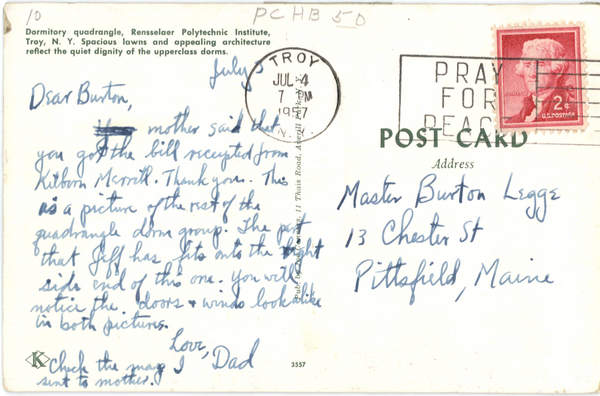 10
PCHB 50
Dormitory quadrangle, Rensselaer Polytechnic Institute,
Troy, N. Y. Spacious lawns and appealing architecture
reflect the quiet dignity of the upperclass dorms.
July 3
TROY
JUL 4
7 PM
1957
N.Y.
PRAY
FOR
PEACE
2¢
U.S. POSTAGE
POST CARD
Address
Dear Burton,
mother said that
you got the bill receipted from
Kilborn Merrill. Thank you. This
is a picture of the rest of the
quadrangle dorm group. The part
that Jeff has fits onto the right
side end of this one. You will
notice the doors & winds look alike
in both pictures.
Love, Dad
Check the map I
sent to mother.
Master Burton Legge
13 Chester St
Pittsfield, Maine
K
3557
11 Thais Road, Averill Park, N. Y.